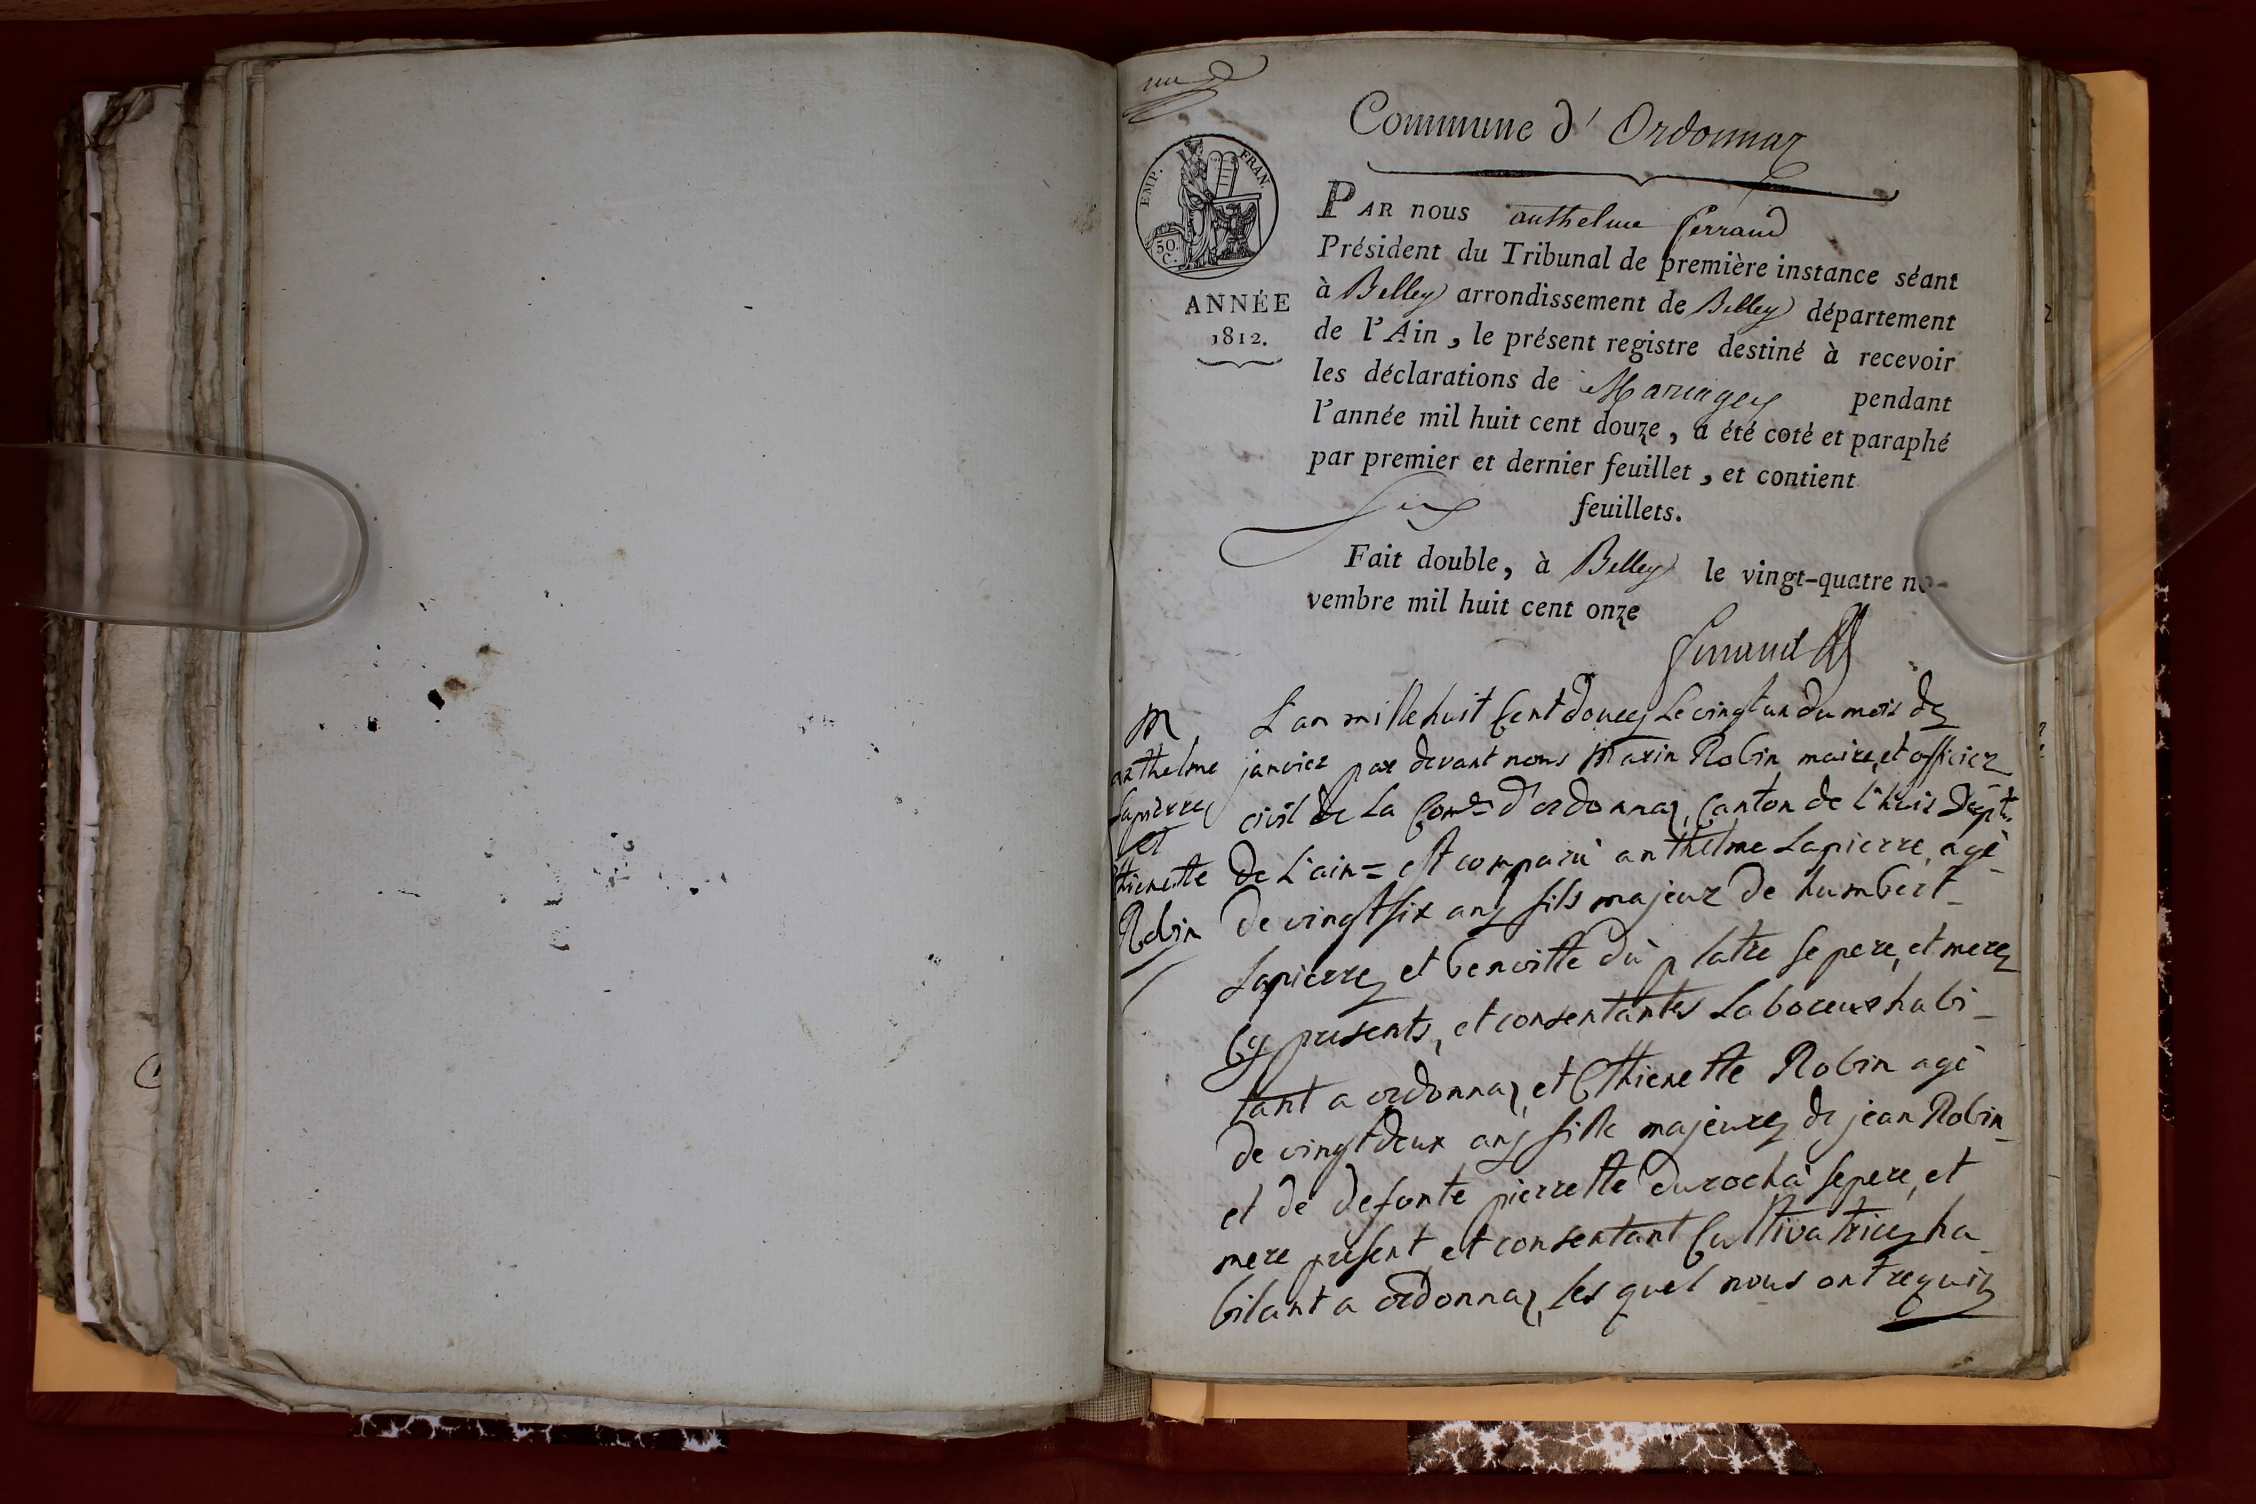 Commune d'Ordonnaz
EMP. FRAN.
50.
C.
ANNÉE
1812.
PAR nous anthelme ferrand
Président du Tribunal de première instance séant
à Belley arrondissement de Belley département
de l'Ain, le présent registre destiné à recevoir
les déclarations de Mariages pendant
l'année mil huit cent douze, a été coté et paraphé
par premier et dernier feuillet, et contient
Six feuillets.
Fait double, à Belley le vingt-quatre no-
vembre mil huit cent onze
ferrand
M
anthelme
Lapierre
et
thienette
Robin
L'an mille huit Cent douez Le vingt un du mois de
janvier par devant nous Marin Robin maire, et officier
civil de La Com.e d'ordonnaz, Canton de l'huis Dept
de L'ain = est comparu anthelme Lapierre, agé
de vingt six ans fils majeur de humbert
Lapierre et benoitte du platre se pere, et mere
Cy presents, et consentantes Laboceur habi-
tant a ordonnaz, et Ethienette Robin agé
de vingt deux ans fille majeure de jean Robin
et de defonte pierrette durochà se pere, et
mere present, et consentant Cultivatrice ha
bitant a ordonnaz, Les quel nous ont requis